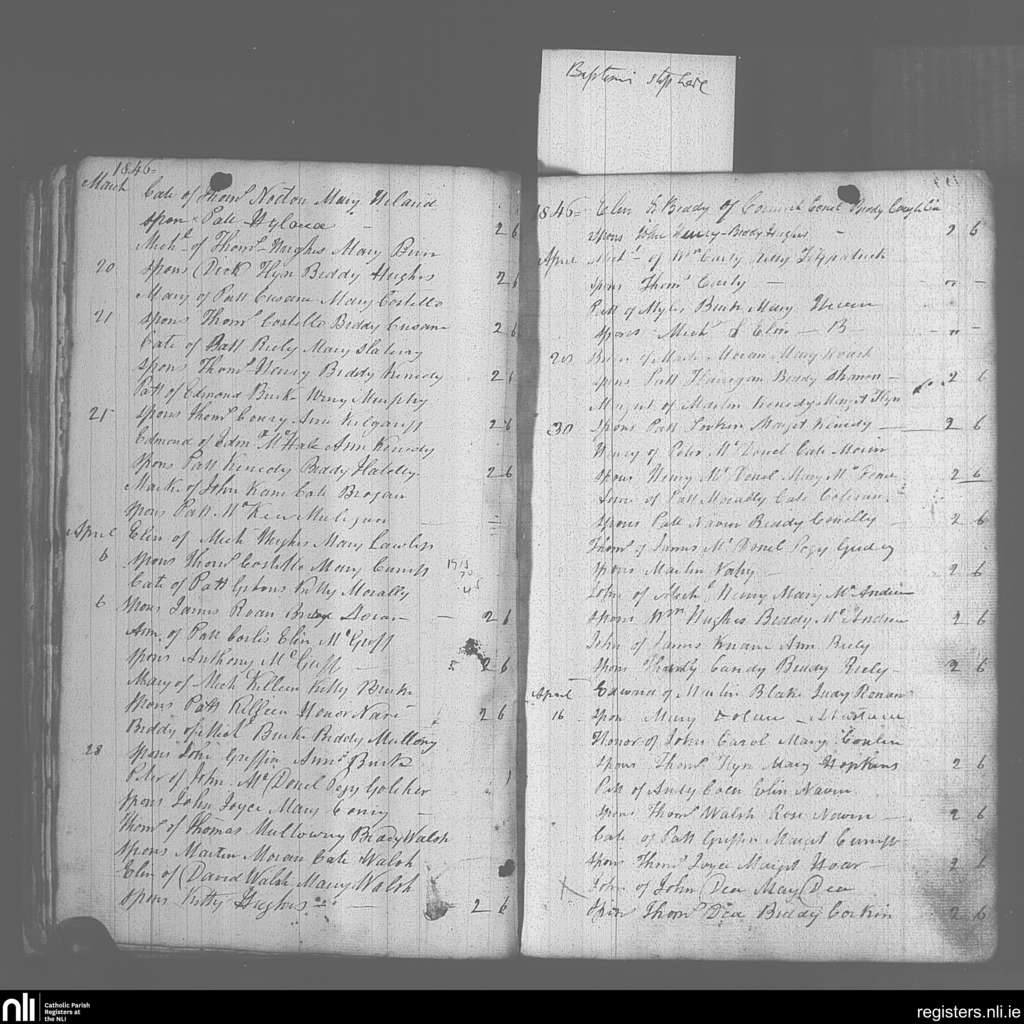 Baptisms stop here
1846
March Cate of Thoms Norton Mary Heland
spon Patt Hyland 2 6
Michl of Thoms Hughes Mary Burn
20 spons Dick Flyn Biddy Hughes 2 6
Mary of Patt Cusam Mary Costello
21 spons Thoms Costello Biddy Cusam 2 6
Cate of Patt Riely Mary Slattery
spons Thoms Henry Biddy Kenedy 2 6
Patt of Edmond Burke Winy Murphy
25 spons Thoms Conry Ann Kilgariff 2 6
Edmond of Edmd McHale Ann Kenedy
spons Patt Kenedy Biddy 2 6
Mark of John Kam Cate Brogan
spons Patt McKew Mulligan
April Elin of Mich Hughes Mary Lawless
6 spons Thoms Costello Mary Cuniff
Cate of Patt Gibons Kitty Morally
6 spons James Roan Doran 2 6
Ann of Patt Corlis Elin McGriff
spons Anthony McGriff 2 6
Mary of Mich Killeen Kitty Burke
spons Patt Killeen Honor Nary 2 6
Biddy of Michl Burke Biddy Mullony
28 spons John Griffin Ann Burke
Peter of John McDonel Pegy Golcher
spons John Joyce Mary Conry
Thoms of Thomas Mullowny Biddy Walsh
spons Martin Moran Cate Walsh
Elin of David Walsh Mary Walsh
spons Kitty Hughes 2 6
1846 Elin & Biddy of Conel Biddy Coughlin
spons John Henry Biddy Hughes 2 6
April Michl of Wm Carty Kitty Fitzpatrick
spons Thoms Carty
Patt of Myles Burke Mary
spons Mich & Elin B
20 of Martin Moran Mary Roark
spons Patt Flanigan Biddy Shanon 2 6
Margret of Martin Kenedy Margt Flyn
30 spons Patt Corkin Margt Kenedy 2 6
Henry of Peter McDonel Cate Moran
spons Henry McDonel Mary 2 6
Anne of Patt Morally Cate
spons Patt Navin Biddy Conelly 2 6
Thoms of James McDonel Pegy
spons Martin Vahy 2 6
John of Mich Henry Mary McAndrew
spons Wm Hughes Biddy McAndrew 2 6
John of James Ann Riely
spons Candy Biddy Riely 2 6
April Edmond of Martin Blake Judy Ronan
16 spon Mary
Honor of John Carol Mary Conlin
spons Thoms Flyn Mary Hopkins 2 6
Patt of Andy Coen Elin Navin
spons Thoms Walsh Rose Navin 2 6
Cate of Patt Griffin Margt Cuniff
spon Thoms Joyce Margt Hoar 2 6
John of John Dea Mary Dea
spon Thoms Dea Biddy Corkin 2 6
nli Catholic Parish
Registers at
the NLI
registers.nli.ie